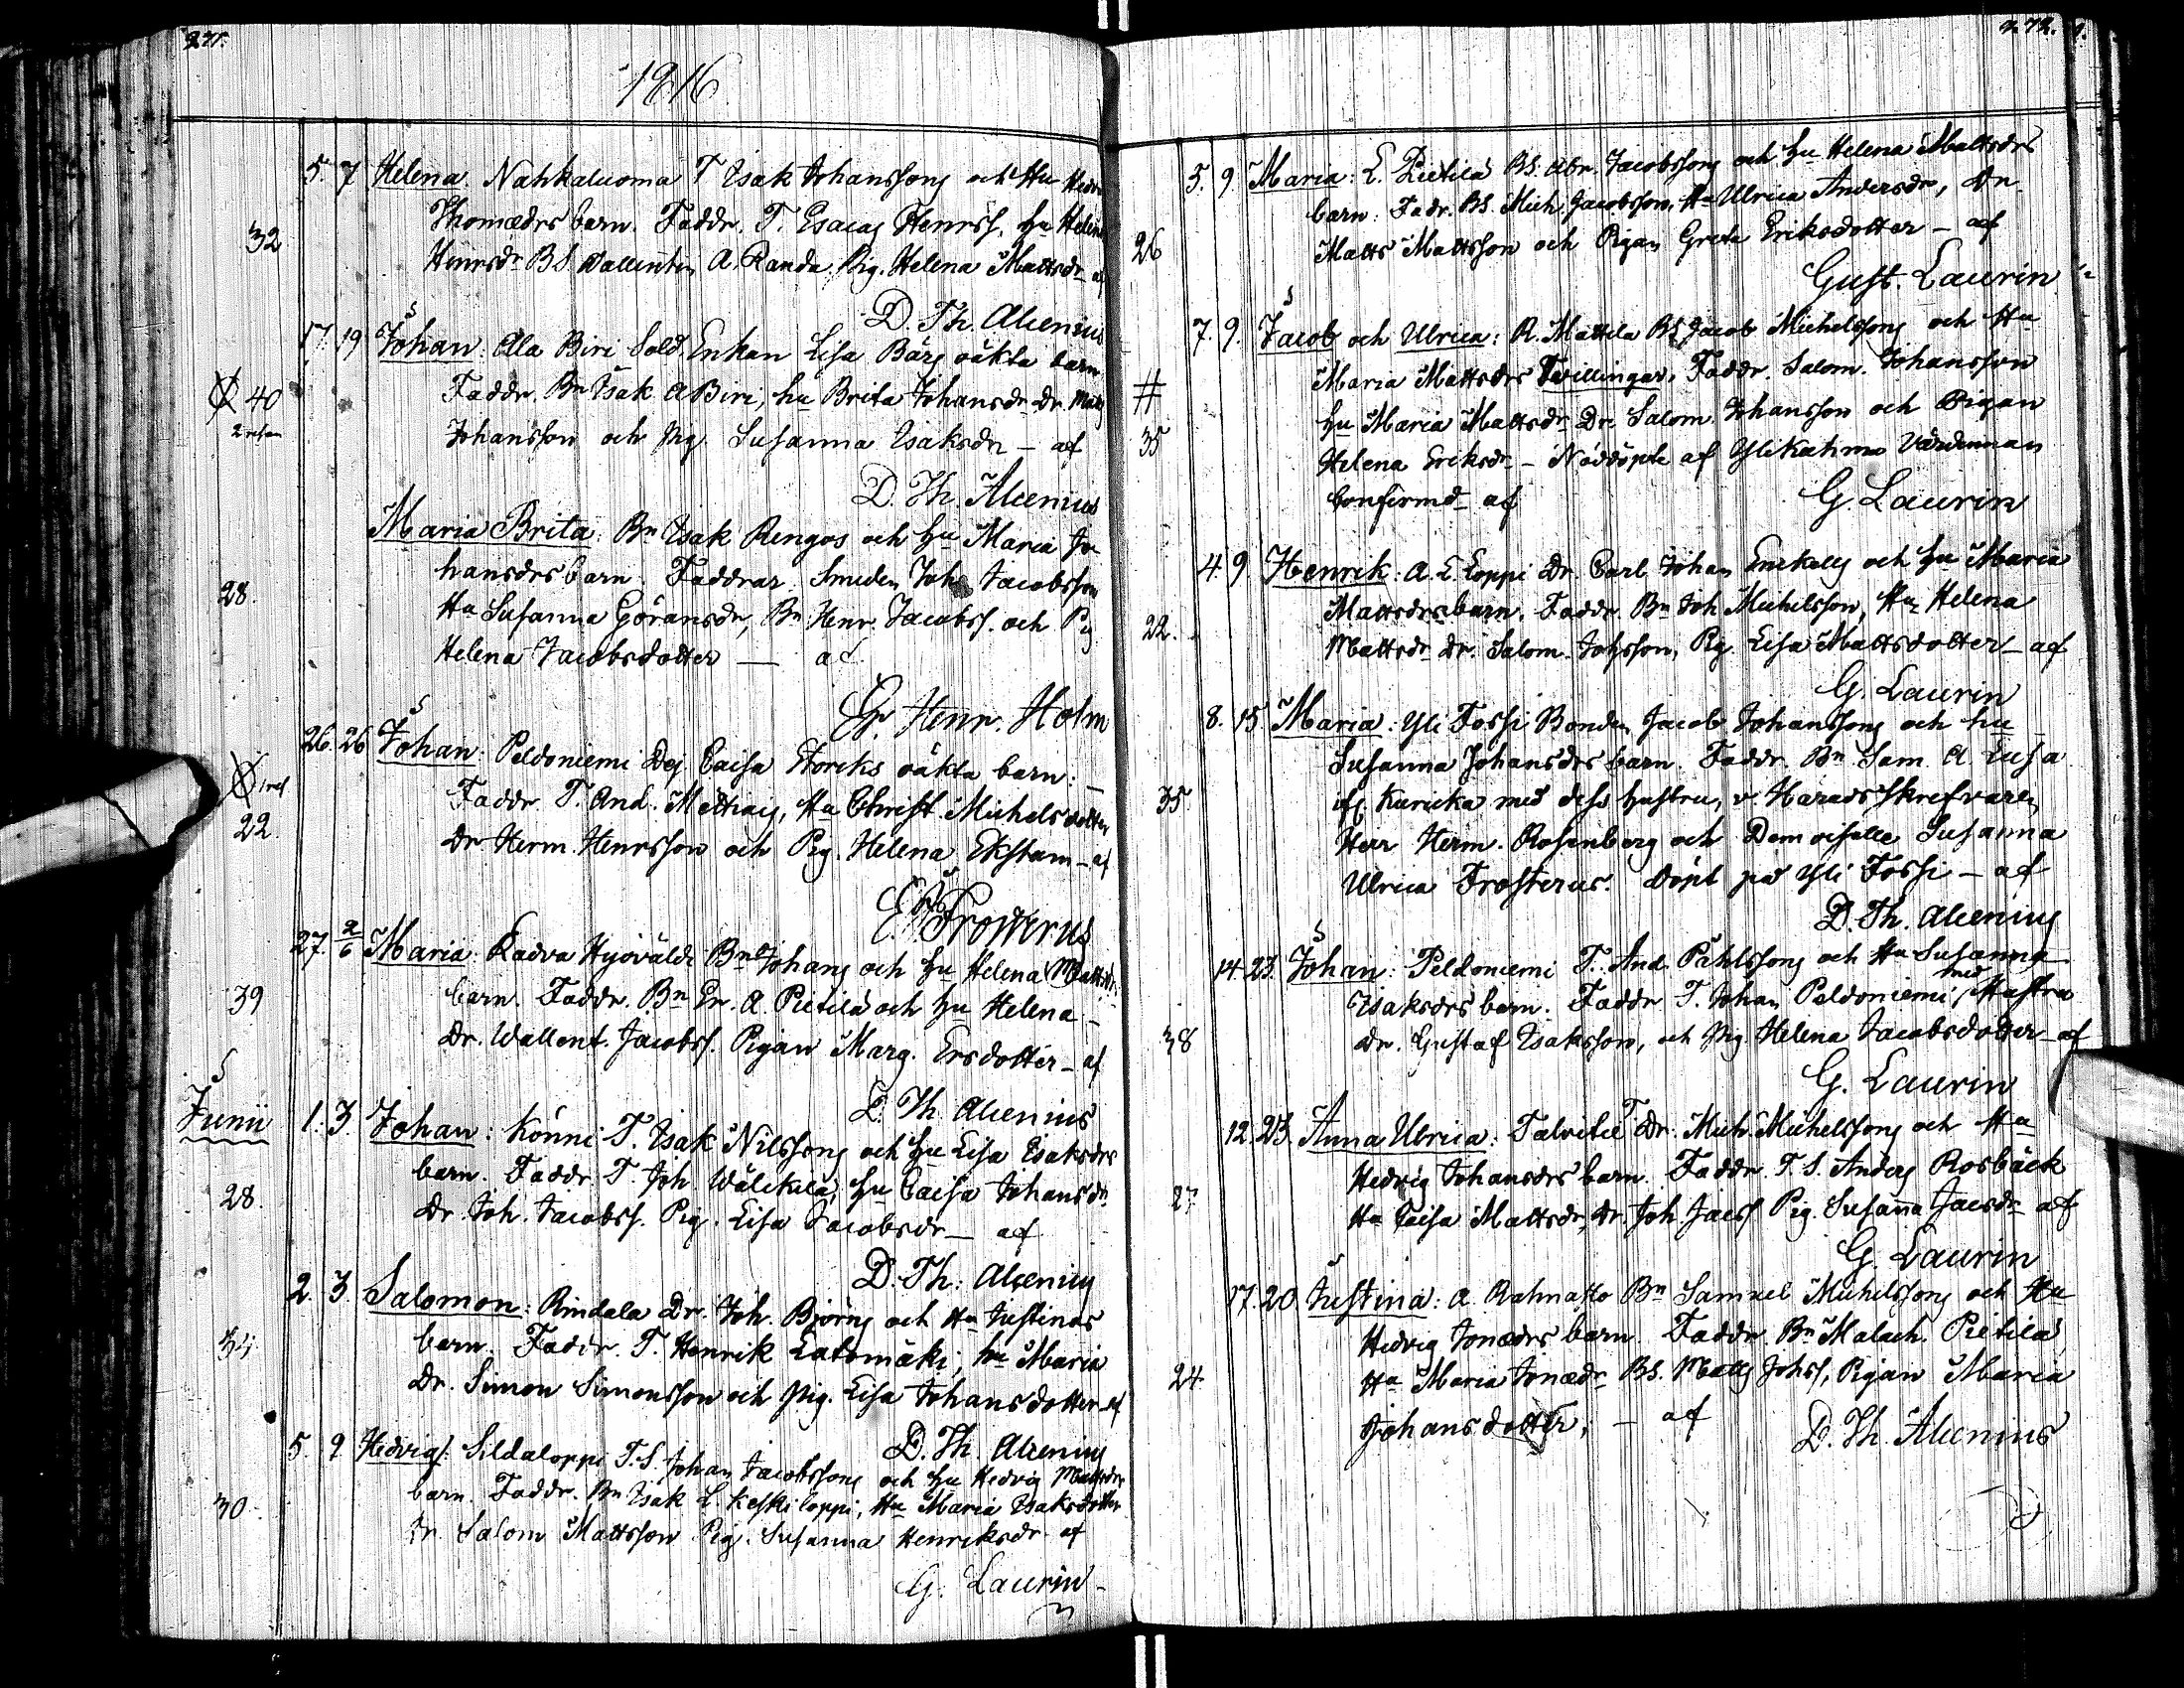 271.
1816
5. 7 Helena. Nahkaluoma T Isak Johanssons och Hu Hedv
Thomædrs barn. Faddr. T. Esaias Henrss. Hu Helena
32
Henrsdr BS. Wallentin A. Randa, Pig. Helena Mattsdr af
D. Th. Alcenius
17. 19 Johan: Ala Biri Sold. Enkan Lisa Bärg oäkta barn
40 Faddr. Bn Isak A Biri, hu Brita Johansdr Dr. Matts
2 resan
Johansson och Pig. Susanna Isaksdr - af
D. Th. Alcenius
Maria Brita: Bn Isak Rengos och Hu Maria Jo
hansdrs barn. Faddrar Smeden Joh. Jacobsson
28. Hu Susanna Göransdr, Bn Henr. Jacobss. och Pig
Helena Jacobsdotter — af
Gr. Henr. Holm
26. 26 Johan: Peldoniemi Pig. Caisa Storeks oäkta barn.
1 res
Faddr. T. And. Mattias, Hu Christ. Michelsdotter
22.
Dr Herm. Henrsson och Pig. Helena Ekstam - af
E. Frosterus
27. 2/6 Maria: Kadva Hyövälti Bn Johans och Hu Helena Mattsdr
39 barn. Faddr. Bn Er. A. Pietilä och Hu Helena -
Dr. Wallent. Jacobss. Pigan Marg. Ersdotter - af
D. Th. Alcenius
Junii 1. 3. Johan: Könni T. Isak Nilssons och Hu Lisa Esaksdrs
barn. Faddr. T. Joh Wälikilä, Hu Caisa Johansdr
28. Dr. Joh. Jacobss. Pig. Lisa Jacobsdr - af
D. Th. Alcenius
2. 3. Salomon: Rindala Dr. Joh. Björns och Hu Justinas
34 barn. Faddr. T. Henrik Latomäki, hu Maria
Dr. Simon Simonsson och Pig. Lisa Johansdotter - af
D. Th. Alcenius
5. 9 Hedvig: Sildaloppi T.S. Johan Jacobssons och Hu Hedvig Mattsdrs
barn. Faddr. Bn Isak L. Keski loppi, Hu Maria Isaksdotter
30.
Dr. Salom Mattsson Pig. Susanna Henriksdr af
G. Laurin
272.
5. 9. Maria: L. Pietilä BS. Abr. Jacobssons och Hu Helena Mattsdrs
barn: Fadr. BS. Mich. Jacobsson, Hu Ulrica Andersdr, Dr.
26 Matts Mattsson och Pigan Greta Eriksdotter - af
Gust. Laurin
7. 9. Jacob och Ulrica: R. Mattila BS Jacob Michelssons och Hu
# Maria Mattsdrs Tvillingar. Faddr. Salom. Johansson
Hu Maria Mattsdr Dr. Salom. Johansson och Pigan
35
Helena Eriksdr - Nöddöpte af Ylikahma Värdinnan
Confirmd af G. Laurin
4. 9. Henrik: A. L. Loppi Dr. Carl Johan Enekells och Hu Maria
Mattsdrs barn. Faddr. Bn Joh. Michelsson, Hu Helena
22. Mattsdr Dr. Salom. Johsson, Pig. Lisa Mattsdotter - af
G. Laurin
8. 15. Maria: Yli Fossi Bonden Jacob Johanssons och hu
Susanna Johansdrs barn. Faddr. Bn Sam. A. Luopa
35. ifr. Kuricka med dess hustru, v. Haradsskrifvaren
Herr Herm. Rosenberg och Demoiselle Susanna
Ulrica Frosterus. Döpt på Yli Fossi - af
D. Th. Alcenius
14. 23. Johan: Peldoniemi T. And. Påhlssons och Hu Susanna
Isaksdrs barn. Faddr. T. Johan Peldoniemi med Hustru
38 Dr. Gustaf Isaksson, och Pig. Helena Jacobsdotter - af
G. Laurin
12. 23. Anna Ulrica: Talvitie Dr. Mich. Michelssons och Hu
Hedvig Johansdrs barn. Faddr. T. S. Anders Rosbäck
27 Hu Caisa Mattsdr, Dr. Joh. Jacss Pig. Susanna Jacsdr af
G. Laurin
17. 20 Justina: A. Rahnasto Bn Samuel Michelssons och Hu
Hedvig Jonædrs barn. Faddr. Bn Malach. Pietilä,
24. Hu Maria Jonædr BS. Matts Johss, Pigan Maria
Johansdotter, - af D. Th. Alcenius